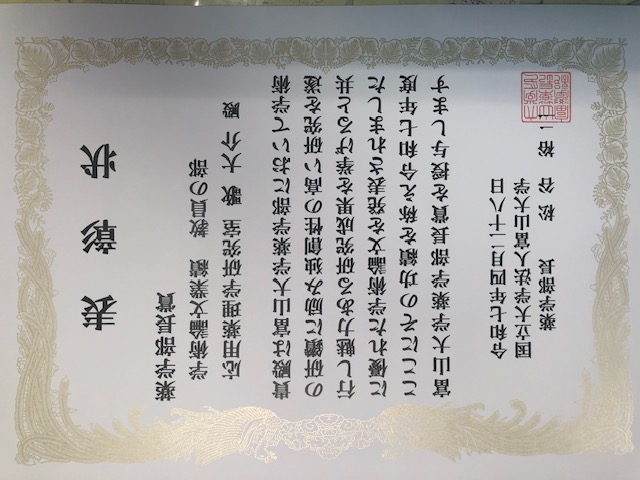 表彰状
薬学部長賞
学術論文業績 教員の部
応用薬理学研究室 歌 大介 殿
貴殿は富山大学薬学部において学術
の研鑽に励み独創性の高い研究を遂
行し魅力ある研究成果を挙げると共
に優れた学術論文を発表されました
ここにその功績を称え令和七年度
富山大学薬学部長賞を授与します
令和七年四月二十八日
国立大学法人富山大学
薬学部長 松谷 裕二